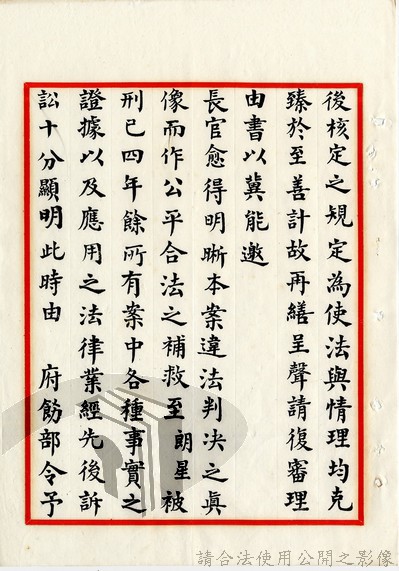 後核定之規定為使法與情理均克
臻於至善計故再繕呈聲請復審理
由書以冀能邀
長官愈得明晰本案違法判決之真
像而作公平合法之補救至 朗星被
刑已四年餘所有案中各種事實之
證據以及應用之法律業經先後訴
訟十分顯明此時由 府飭部令予
請合法使用公開之影像